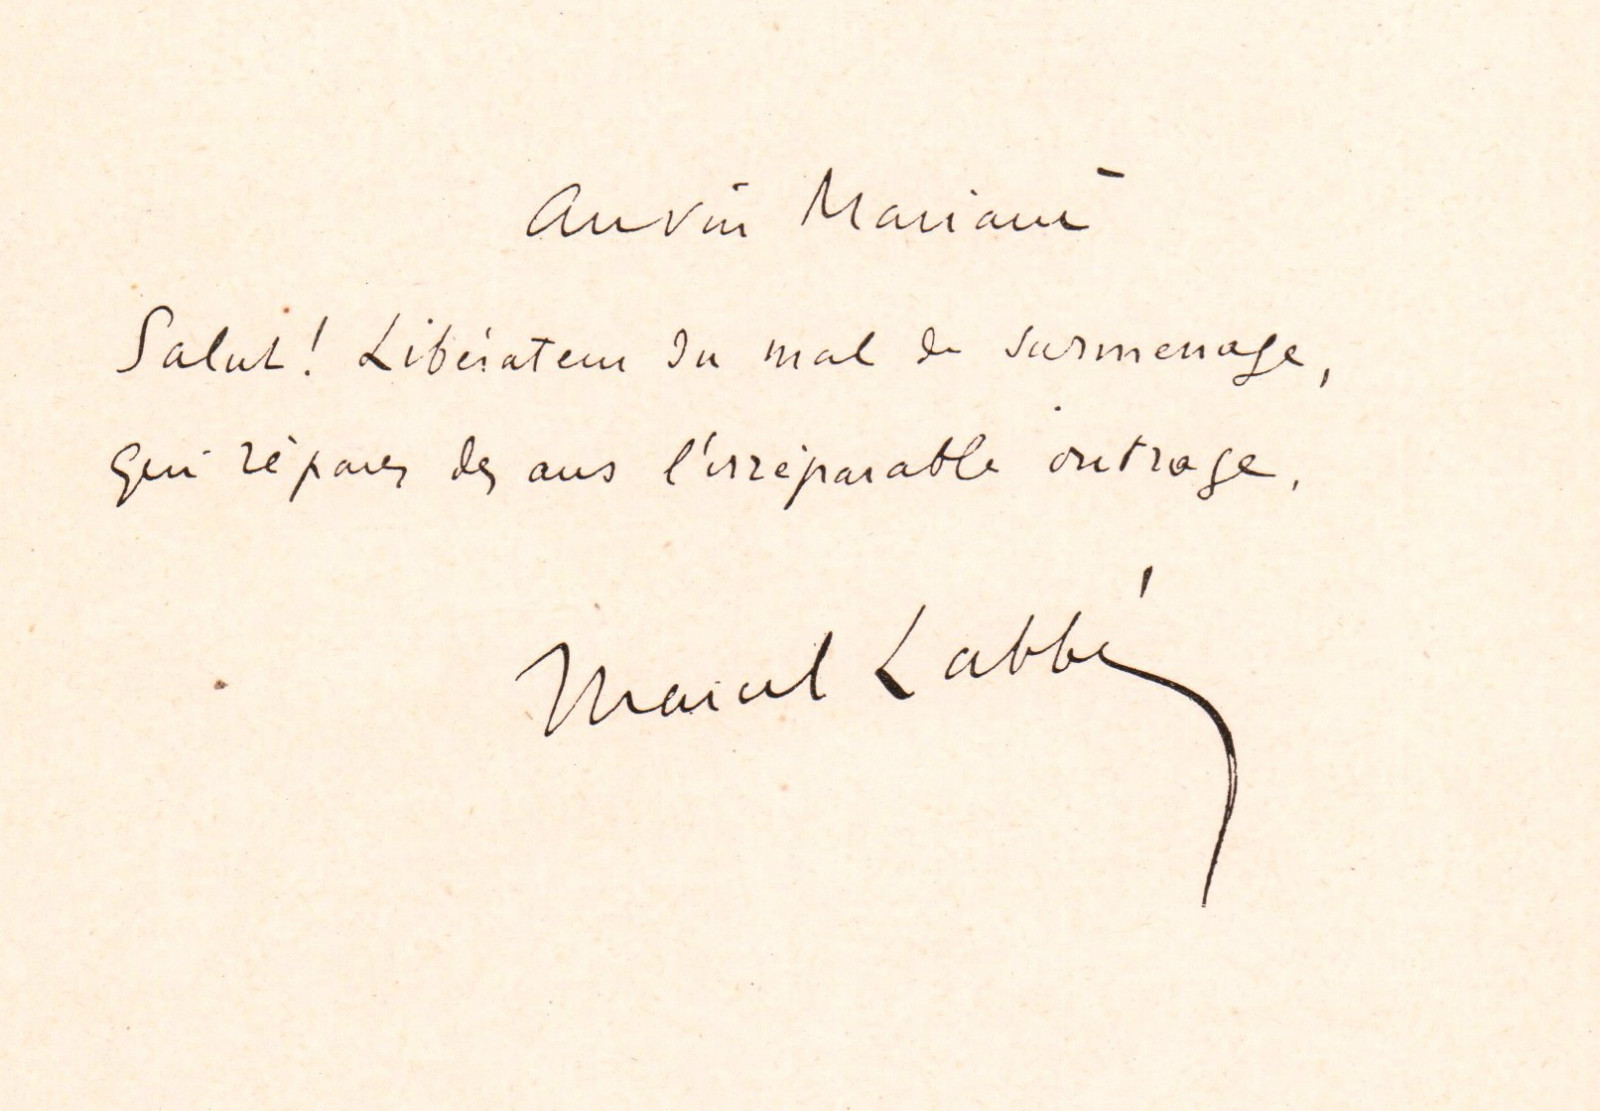 Au Vin Mariani
Salut ! Libérateur du mal de surmenage,
Qui répares des ans l'irréparable outrage.
Marcel Labbé